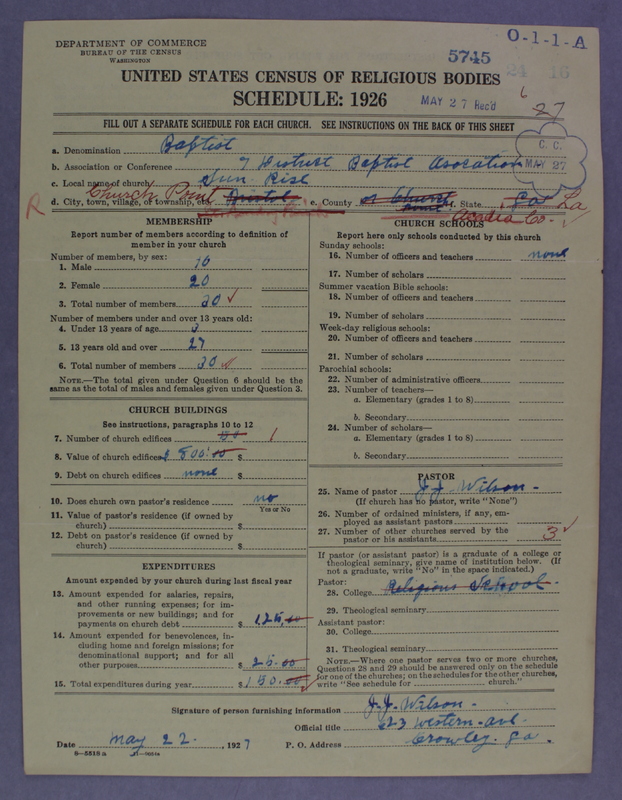 DEPARTMENT OF COMMERCE
BUREAU OF THE CENSUS
WASHINGTON
O-1-1-A
5745
24 16
UNITED STATES CENSUS OF RELIGIOUS BODIES
SCHEDULE: 1926
MAY 27 Rec'd
6
27
FILL OUT A SEPARATE SCHEDULE FOR EACH CHURCH. SEE INSTRUCTIONS ON THE BACK OF THIS SHEET
a. Denomination Baptist
b. Association or Conference 7 District Baptist Asocation
C. C.
MAY 27
c. Local name of church Sun Rise
d. City, town, village, or township, etc. Church Point e. County or Church Point f. State La
R
Acadia Co.
MEMBERSHIP
Report number of members according to definition of member in your church
Number of members, by sex:
1. Male 10
2. Female 20
3. Total number of members 30 ✓
Number of members under and over 13 years old:
4. Under 13 years of age 3
5. 13 years old and over 27
6. Total number of members 30 ✓
NOTE.—The total given under Question 6 should be the
same as the total of males and females given under Question 3.
CHURCH BUILDINGS
See instructions, paragraphs 10 to 12
7. Number of church edifices 1
8. Value of church edifices $ 500.00 $
9. Debt on church edifices none $
10. Does church own pastor's residence no
Yes or No
11. Value of pastor's residence (if owned by
church) $
12. Debt on pastor's residence (if owned by
church) $
EXPENDITURES
Amount expended by your church during last fiscal year
13. Amount expended for salaries, repairs,
and other running expenses; for im-
provements or new buildings; and for
payments on church debt $ 125.00
14. Amount expended for benevolences, in-
cluding home and foreign missions; for
denominational support; and for all
other purposes $ 25.00
15. Total expenditures during year $ 150.00 ✓
CHURCH SCHOOLS
Report here only schools conducted by this church
Sunday schools:
16. Number of officers and teachers none
17. Number of scholars
Summer vacation Bible schools:
18. Number of officers and teachers
19. Number of scholars
Week-day religious schools:
20. Number of officers and teachers
21. Number of scholars
Parochial schools:
22. Number of administrative officers
23. Number of teachers—
a. Elementary (grades 1 to 8)
b. Secondary
24. Number of scholars—
a. Elementary (grades 1 to 8)
b. Secondary
PASTOR
25. Name of pastor J. J. Wilson
(If church has no pastor, write "None")
26. Number of ordained ministers, if any, em-
ployed as assistant pastors
27. Number of other churches served by the
pastor or his assistants 3 ✓
If pastor (or assistant pastor) is a graduate of a college or
theological seminary, give name of institution below. (If
not a graduate, write "No" in the space indicated.)
Pastor:
28. College Religious School
29. Theological seminary
Assistant pastor:
30. College
31. Theological seminary
NOTE.—Where one pastor serves two or more churches,
Questions 28 and 29 should be answered only on the schedule
for one of the churches; on the schedules for the other churches,
write "See schedule for church."
Signature of person furnishing information J. J. Wilson
Official title 623 Western Ave
Date May 22, 1927 P. O. Address Crowley, La.
8—5518 a